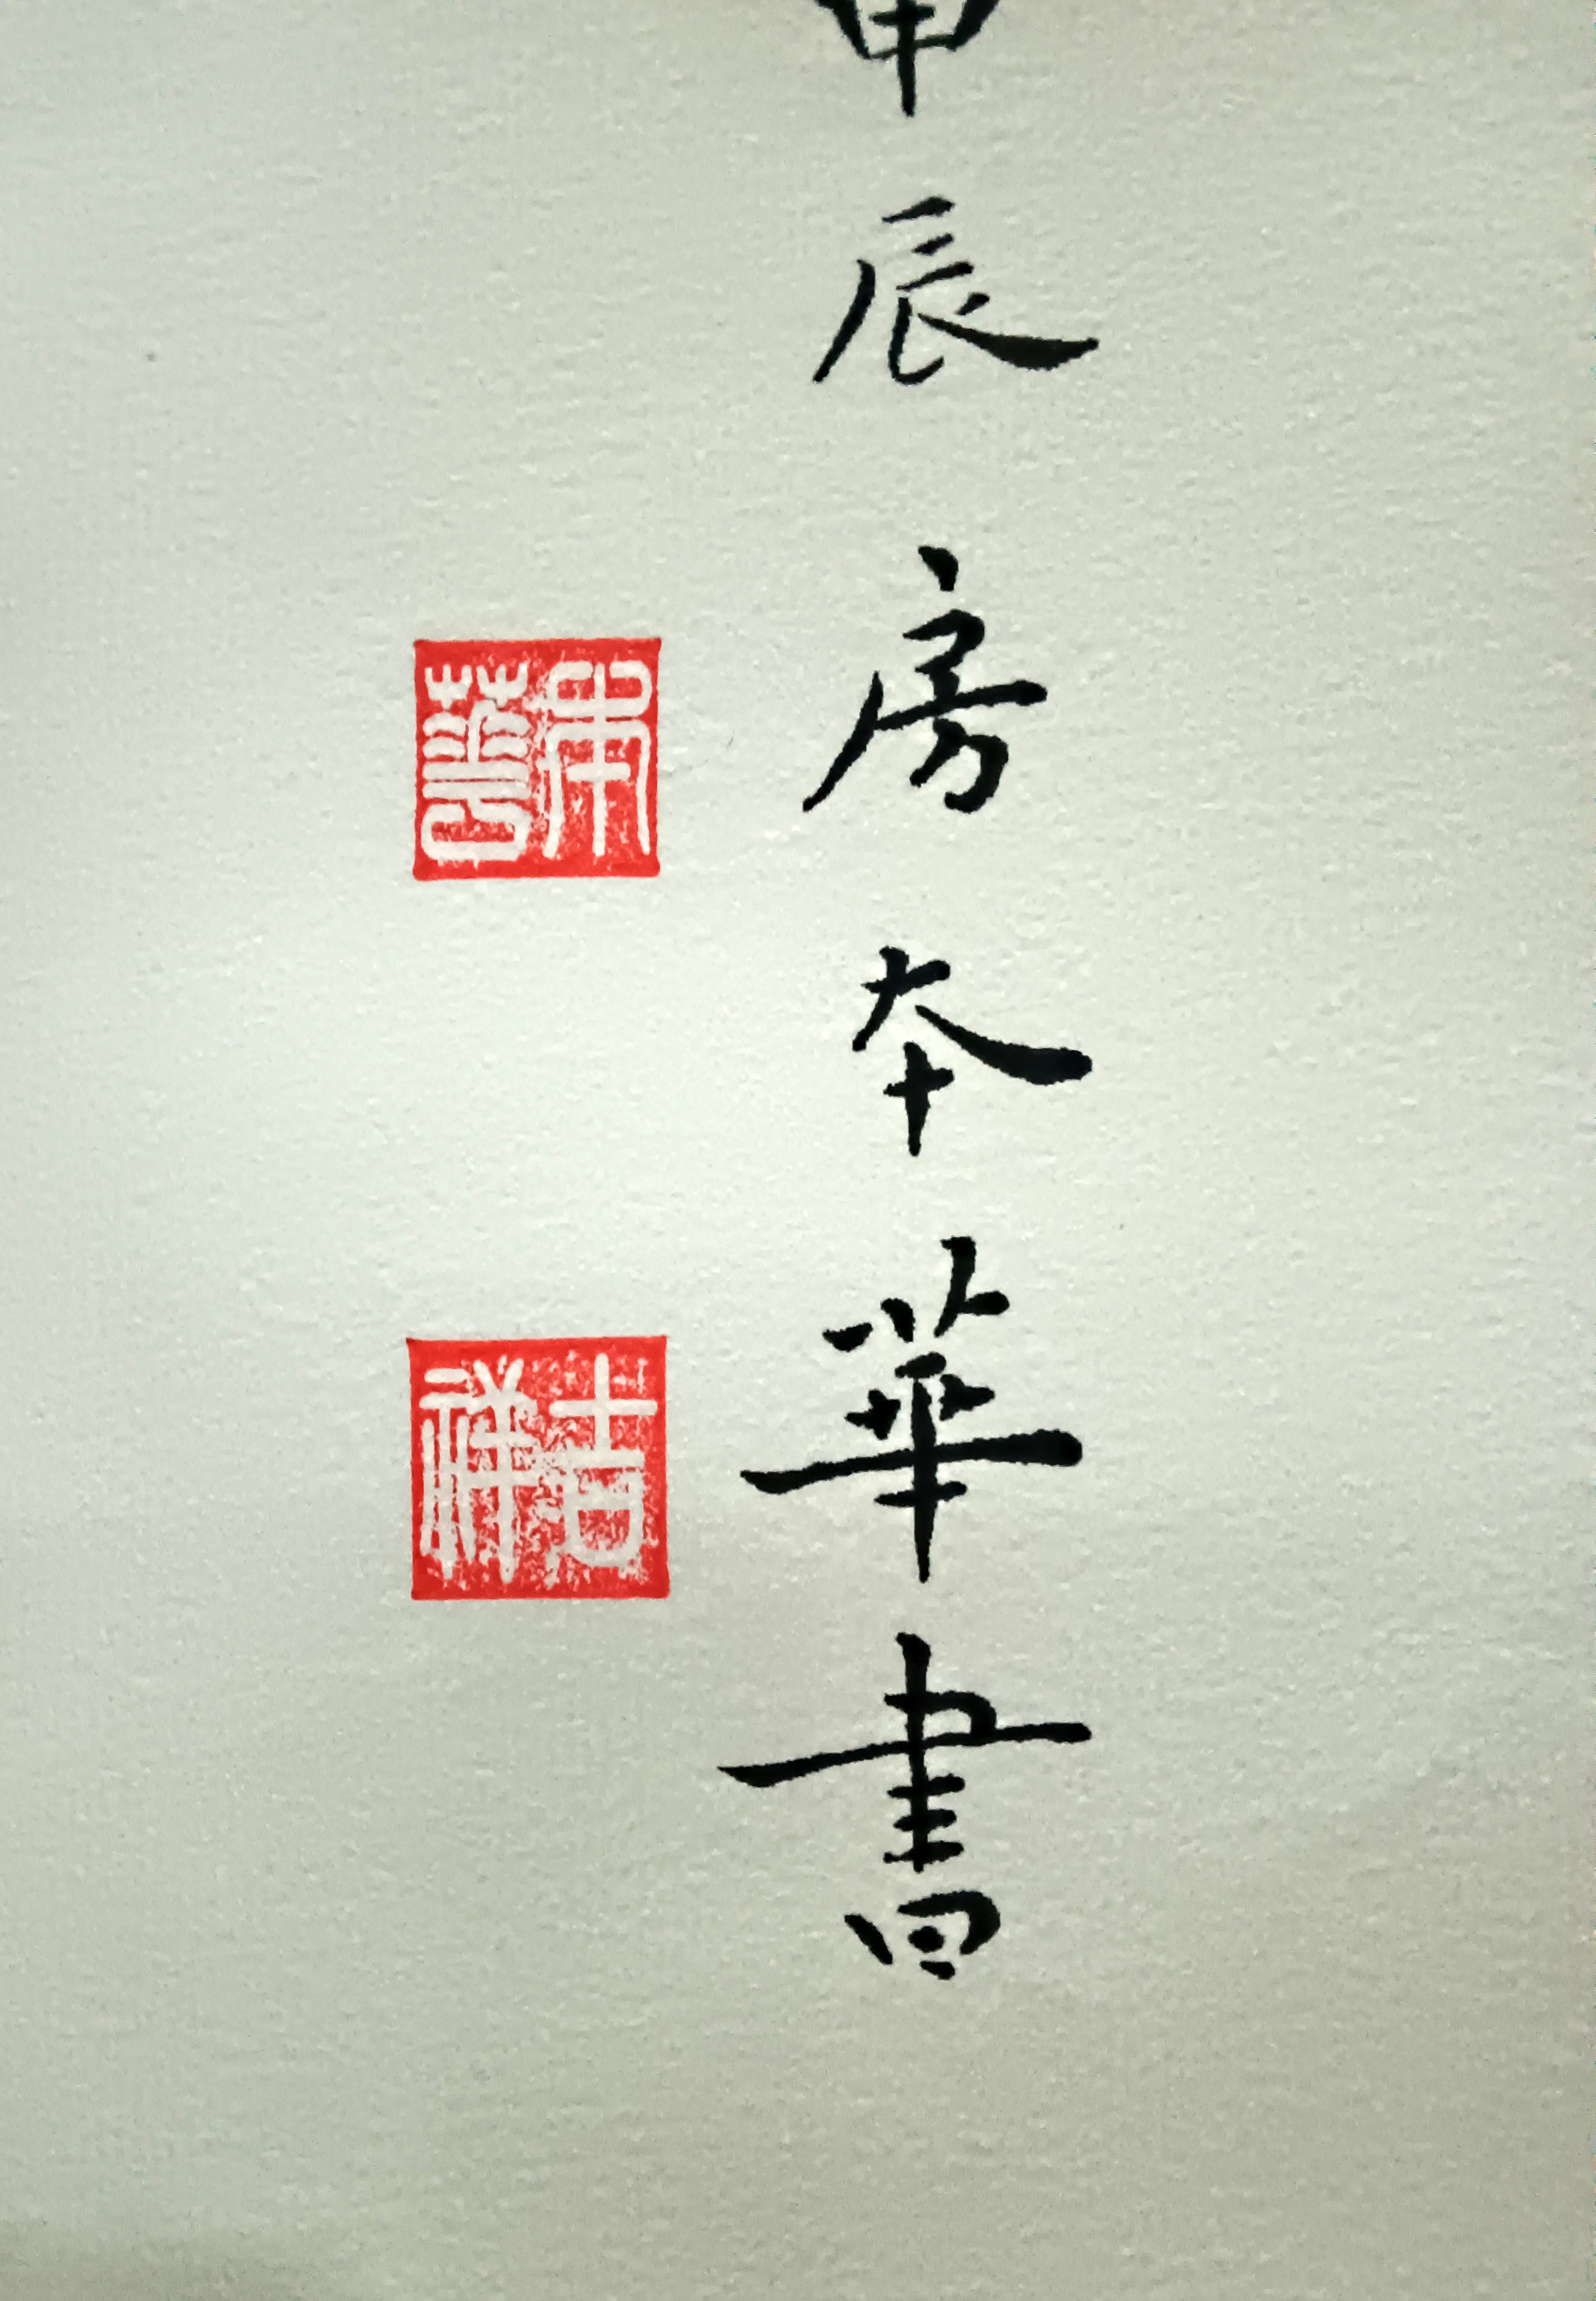 甲辰 房本華書
本華
吉祥